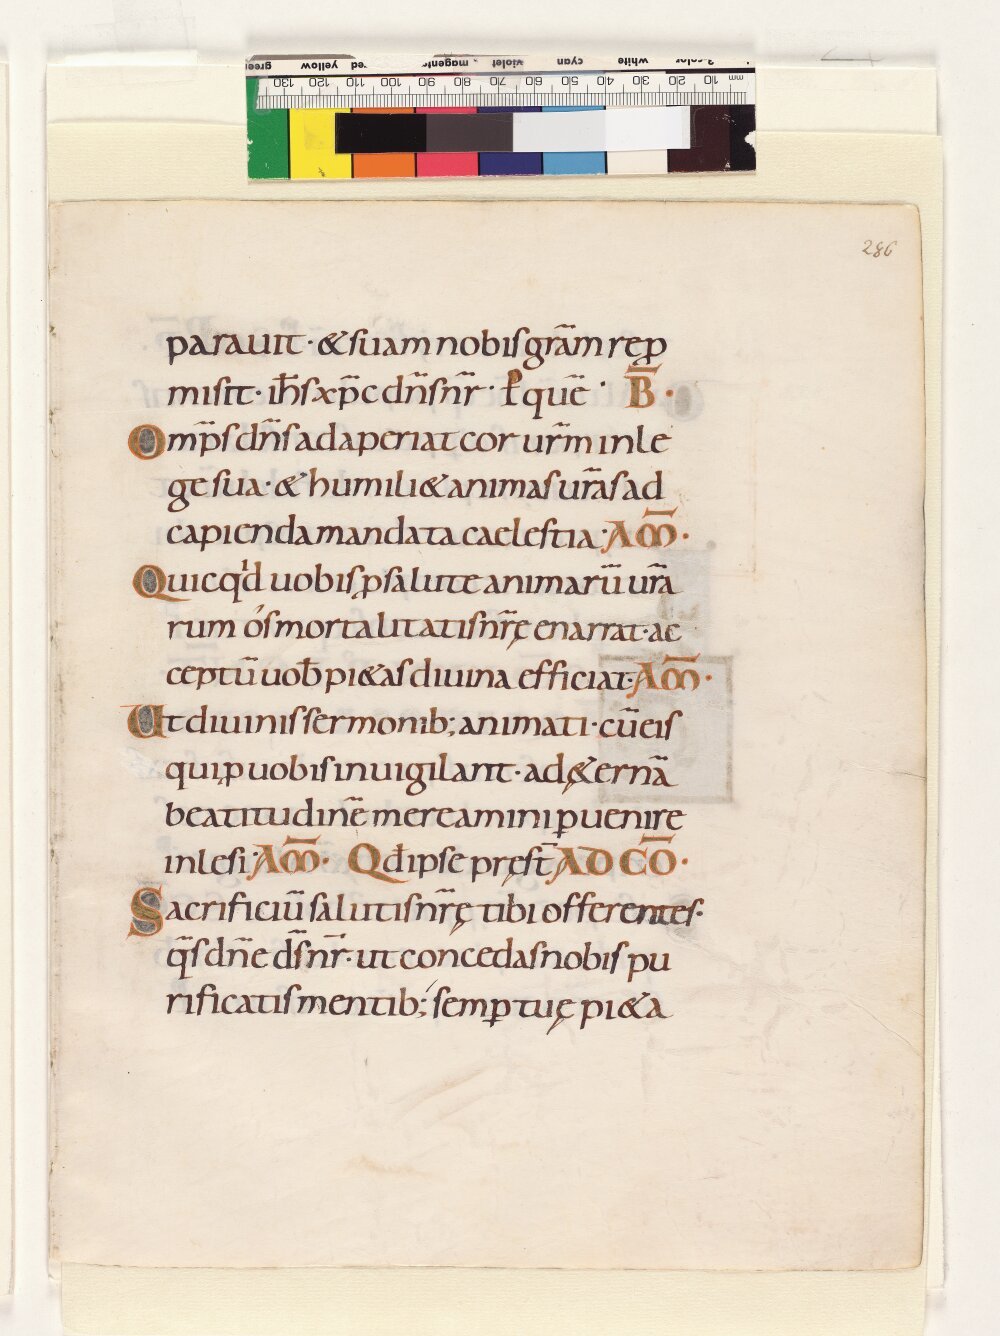 green yellow red magenta violet cyan white 3-color
130 120 110 100 90 80 70 60 50 40 30 20 10 mm
286
parauit · & suam nobis gr̄am rep̱
misit · ih̄s xp̄c dn̄s nr̄ · Ꝑ quē · B̄ ·
Om̄ps dn̄s adaperiat cor ur̄m in le
ge sua · & humili& animas ur̄as ad
capienda mandata caelestia · AM̄ ·
Quicqd uobis ꝓ salute animarū ur̄a
rum ós mortalitatis nr̄ę enarrat · ac
ceptū uob̄ pi&as diuina efficiat · AM̄ ·
Ut diuinis sermonib; animati · cū eis
qui ꝓ uobis inuigilant · ad ę&ernā
beatitudinē mereamini ꝑuenire
inlesi · AM̄ · Qd̄ ipse pręst̄ AD CŌ ·
Sacrificiū salutis nr̄ę tibi offerentes ·
q̄s dn̄e ds̄ nr̄ · ut concedas nobis pu
rificatis mentib; semꝑ tuę pi&a